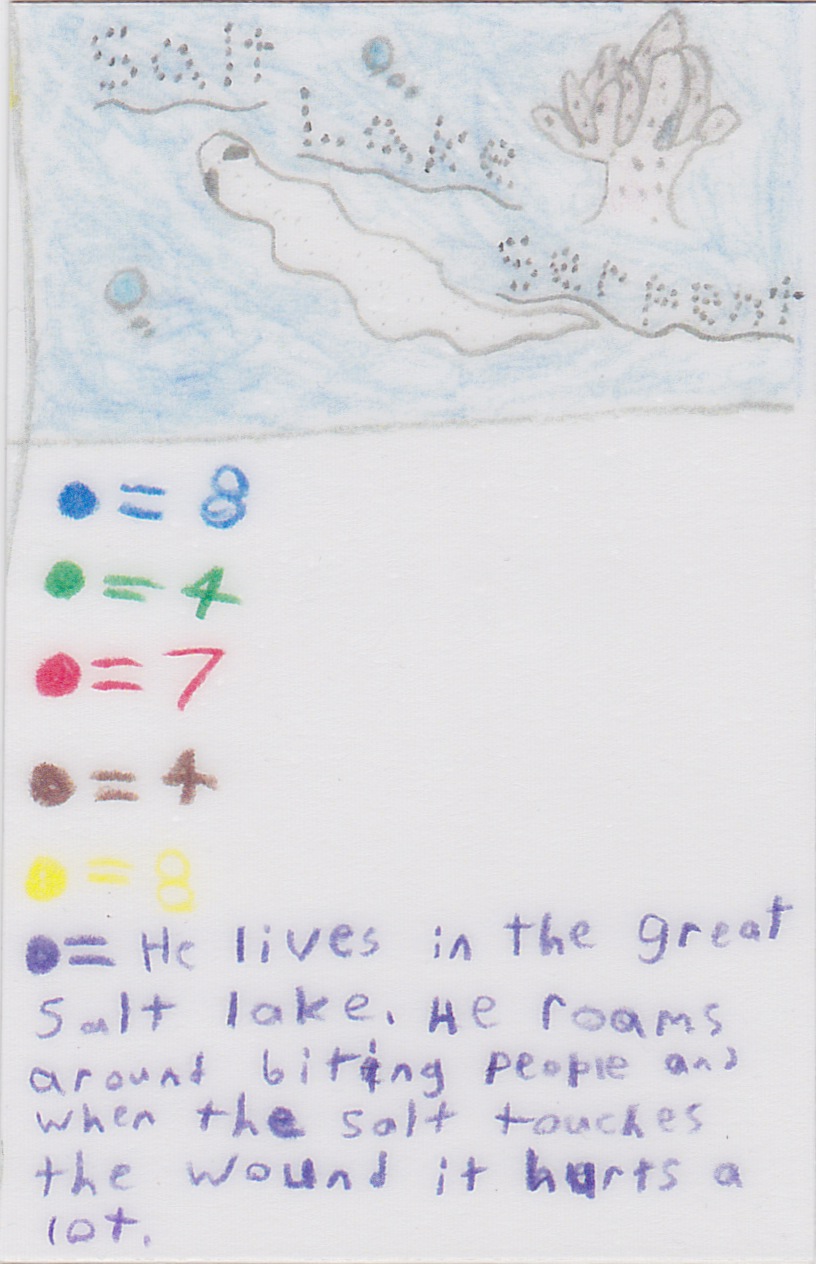 Salt
Lake
Serpent
= 8
= 4
= 7
= 4
= 8
= He lives in the great
Salt lake. He roams
around biting people and
when the salt touches
the wound it hurts a
lot.